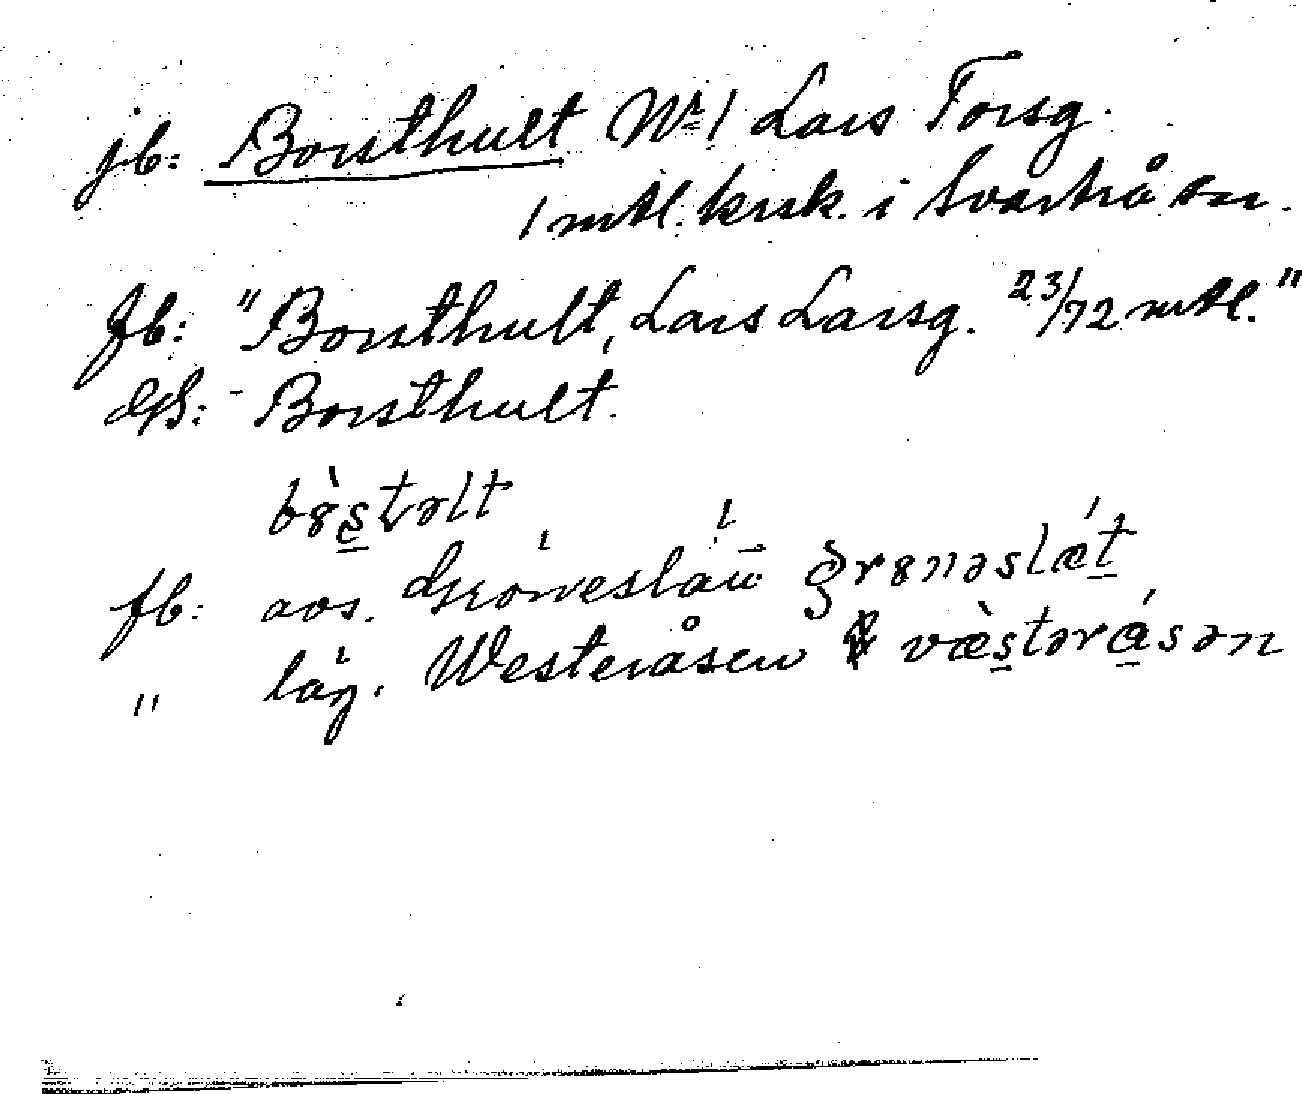 jb: Borsthult Nr 1 Lars Torsg.
1 mtl. krsk. i Svartrå sn.
Jb: "Borsthult, Lars Larsg. 23/72 mtl."
GS: - Borsthult.
bòstəlt
fb: avs. Gröneslätt grönəslǽt
" läg. Westeråsen væ̀stəråsən